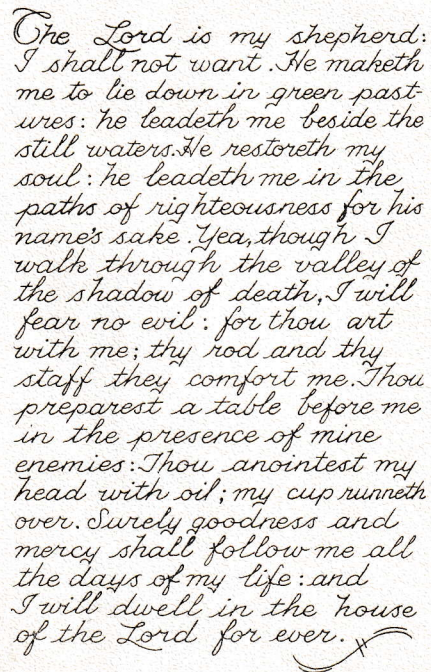 The Lord is my shepherd:
I shall not want. He maketh
me to lie down in green past-
ures: he leadeth me beside the
still waters. He restoreth my
soul: he leadeth me in the
paths of righteousness for his
name's sake. Yea, though I
walk through the valley of
the shadow of death, I will
fear no evil: for thou art
with me; thy rod and thy
staff they comfort me. Thou
preparest a table before me
in the presence of mine
enemies: Thou anointest my
head with oil; my cup runneth
over. Surely goodness and
mercy shall follow me all
the days of my life: and
I will dwell in the house
of the Lord for ever.